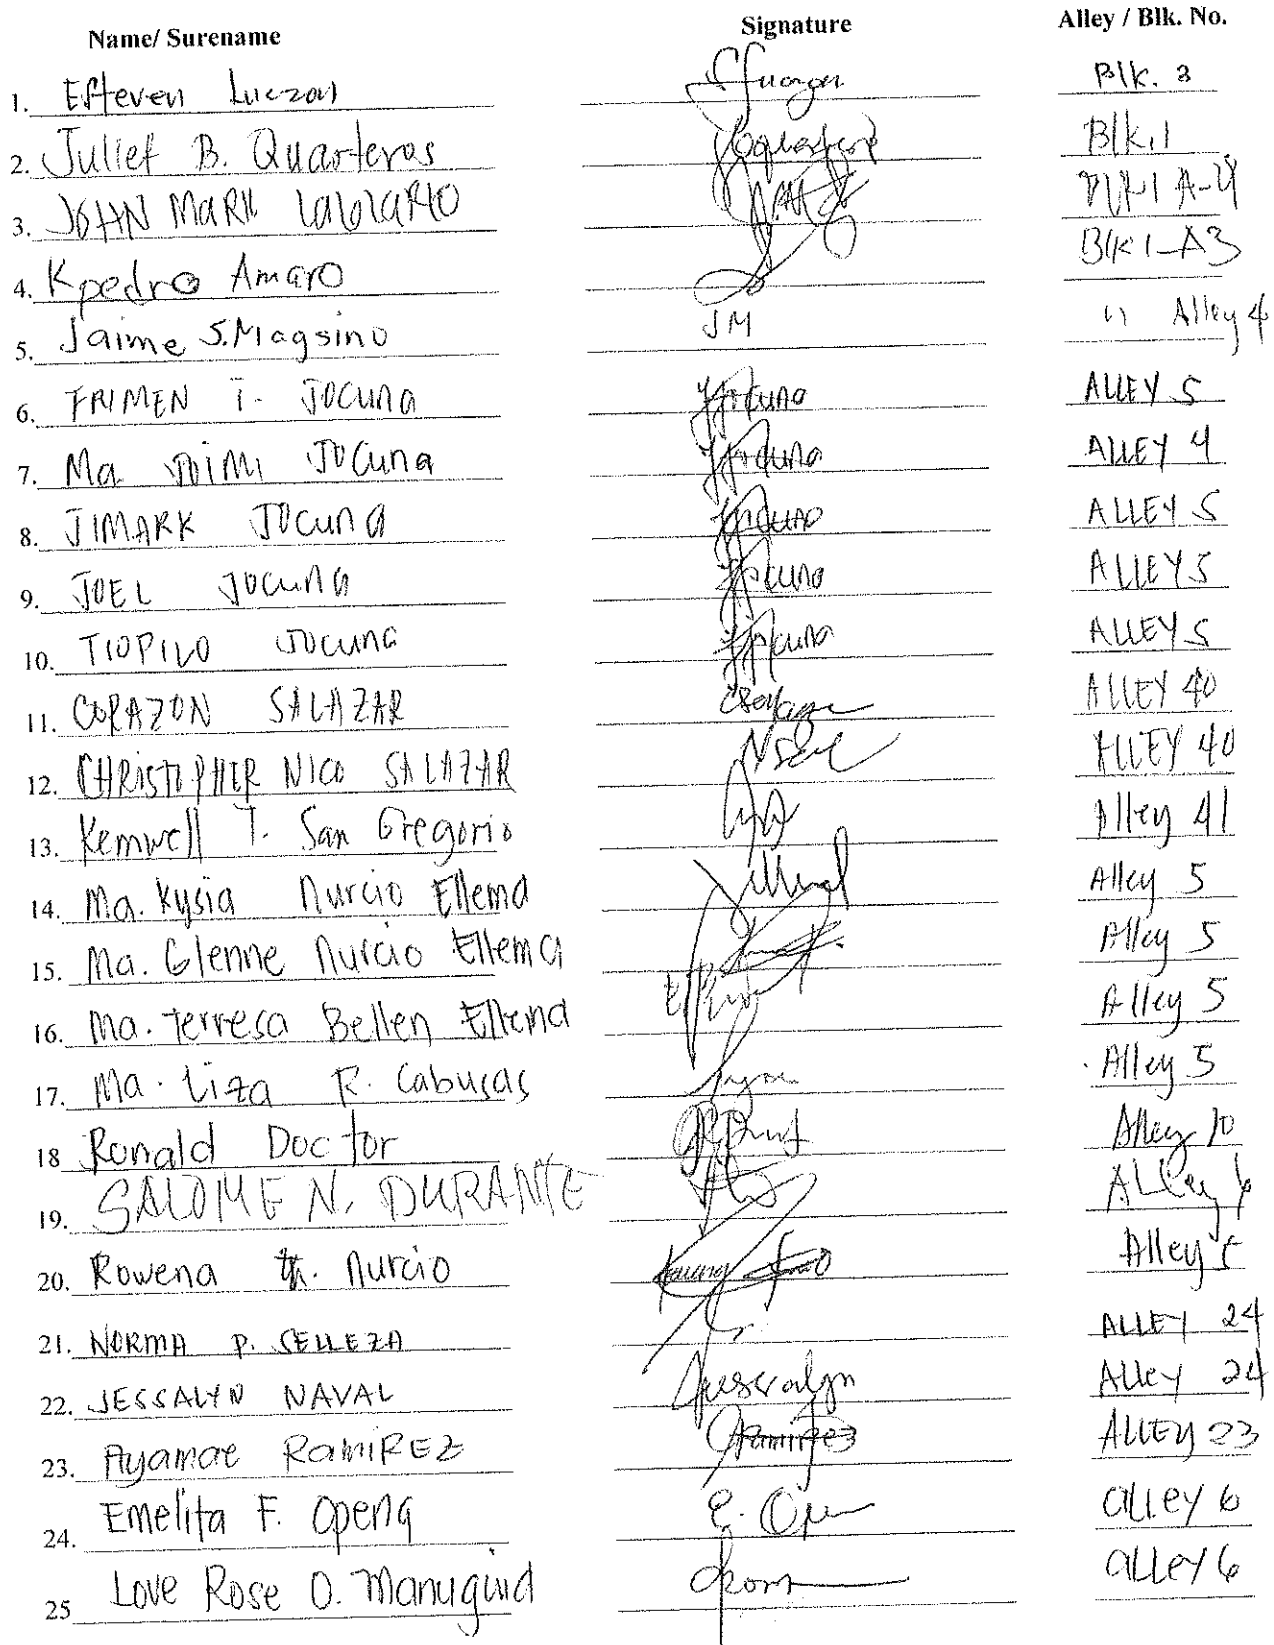 Name/ Surename Signature Alley / Blk. No.
1. Efteven Luczon Blk. 3
2. Juliet B. Quarteros Blk.1
3. JOHN MARK Blk-1 A-4
4. Kpedro Amaro Blk 1-A3
5. Jaime S. Magsino JM " Alley 4
6. FRIMEN T. JOCUNA Jocuna ALLEY 5
7. Ma. JOIMI JOCUNA Jocuna ALLEY 4
8. JIMARK JOCUNA Jocuna ALLEY 5
9. JOEL JOCUNA Jocuna ALLEY 5
10. TIOPILO JOCUNA Jocuna ALLEY 5
11. CORAZON SALAZAR ALLEY 40
12. CHRISTOPHER NICO SALAZAR ALLEY 40
13. Kemwell T. San Gregorio Alley 41
14. Ma. Kysia Nurcio Ellema Alley 5
15. Ma. Glenne Nurcio Ellema Alley 5
16. Ma. Terresa Bellen Ellema Alley 5
17. Ma. Liza R. Cabusas Alley 5
18 Ronald Doctor Alley 10
19. SALOME N. DURANTE ALLey 6
20. Rowena Nurcio Alley 5
21. NORMA P. SELLEZA ALLEY 24
22. JESSALYN NAVAL Jessralyn ALLEY 24
23. Ayamae RAMIREZ Ramirez ALLEY 23
24. Emelita F. Opeña E. Ope alley 6
25 Love Rose O. Manuguid alley 6